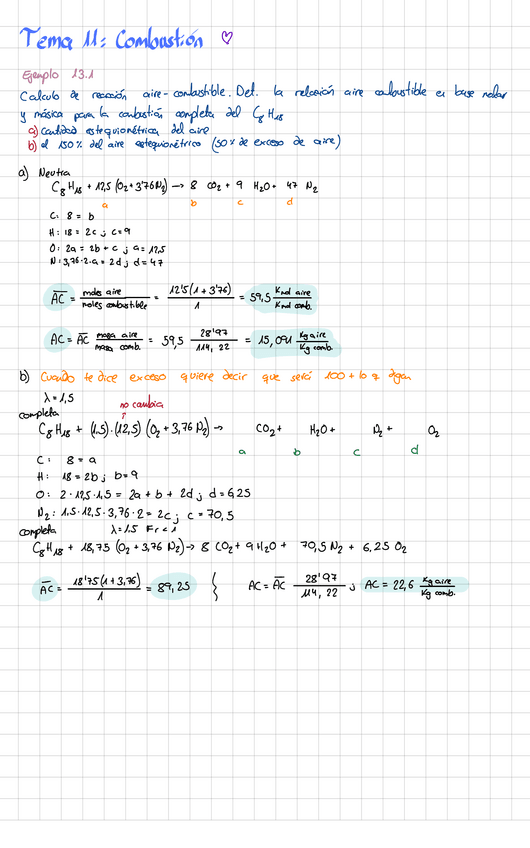 Tema 11: Combustión ♡
Ejemplo 13.1
Calculo de reacción aire-combustible. Det. la relación aire combustible en base molar
y másica para la combustión completa del C₈H₁₈
a) Cantidad estequiométrica del aire
b) el 150% del aire estequiométrico (50% de exceso de aire)
a) Neutra
C₈H₁₈ + 12,5 (O₂+3'76N₂) → 8 CO₂ + 9 H₂O + 47 N₂
a b c d
C: 8 = b
H: 18 = 2c ; c=9
O: 2a = 2b + c ; a = 12,5
N: 3,76·2·a = 2d ; d = 47
AC = moles aire / moles combustible = 12'5(1+3'76) / 1 = 59,5 Kmol aire / Kmol comb.
AC = AC masa aire / masa comb. = 59,5 28'97 / 114,22 = 15,091 Kg aire / Kg comb.
b) Cuando te dice exceso quiere decir que será 100 + lo q digan
λ = 1,5
completa no cambia ↑
C₈H₁₈ + (1.5)·(12,5) (O₂ + 3,76 N₂) → CO₂ + H₂O + N₂ + O₂
a b c d
C: 8 = a
H: 18 = 2b ; b=9
O: 2·12,5·1,5 = 2a + b + 2d ; d = 6,25
N₂: 1.5·12,5·3,76·2 = 2c ; c = 70,5
completa λ = 1.5 Fr < 1
C₈H₁₈ + 18,75 (O₂ + 3,76 N₂) → 8 CO₂ + 9 H₂O + 70,5 N₂ + 6,25 O₂
AC = 18'75(1+3,76) / 1 = 89,25 AC = AC 28'97 / 114,22 ; AC = 22,6 Kg aire / Kg comb.